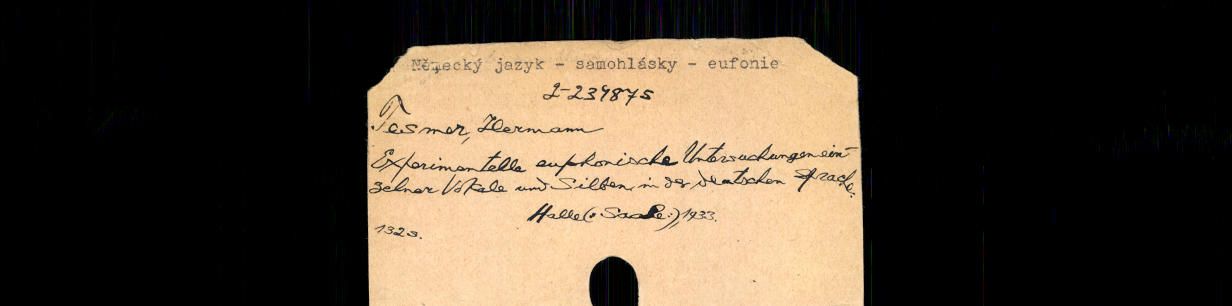 Německý jazyk - samohlásky - eufonie
2-234875
Tesmer, Hermann
Experimentelle euphonische Untersuchungen ein-
zelner Vokale und Silben, in der deutschen Sprache.
Halle (: Saale :), 1933.
132 s.